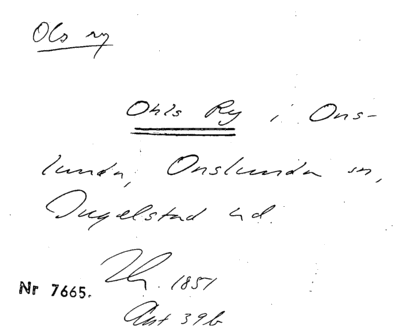 Ols ry
Ohls Ry i Ons-
lunda, Onslunda sn,
Ingelstad hd.
1851
Nr 7665.
Akt 39b